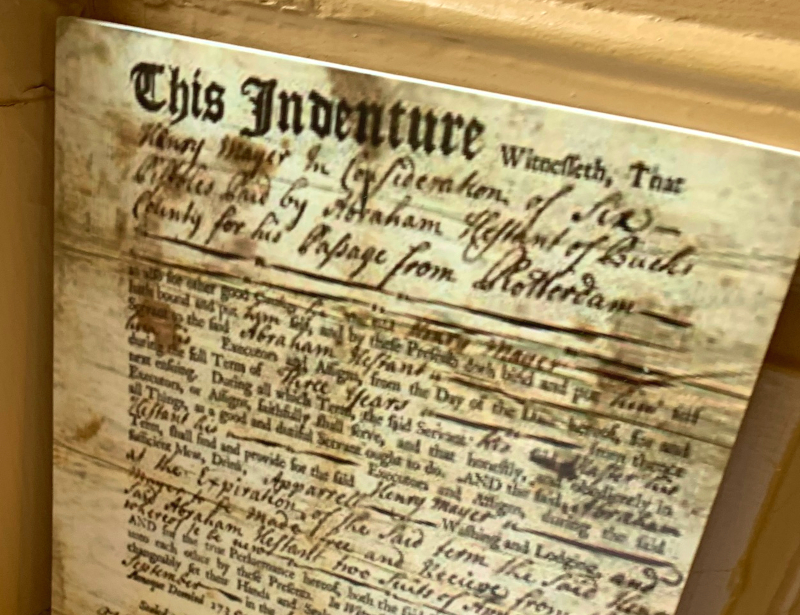 This Indenture Witnesseth, That
Henry Mayer In Consideration of Six
Pistoles Paid by Abraham Hestant of Bucks
County for his Passage from Rotterdam
as also for other good Causes, he the said Henry Mayer
hath bound and put him self, and by these Presents doth bind and put him self
Servant to the said Abraham Hestant
Executors and Assigns, from the Day of the Date hereof, for and
during the full Term of Three Years from thence
next ensuing. During all which Term, the said Servant his said Master his
Executors, or Assigns faithfully shall serve, and that honestly, and obediently in
all Things, as a good and dutiful Servant ought to do. AND the said Abraham
Hestant his Executors and Assigns, during the said
Term, shall find and provide for the said Henry Mayer
sufficient Meat, Drink, Apparrell Washing and Lodging, and
at the Expiration of the Said term the Said
made free and Recieve from
Said Abraham Hestant two Suits of
whereof is to be new
AND the true Performance hereof, both the said
unto each other by these Presents. In
changeably set their Hands and Seals
September in the
Annoque Domini 173